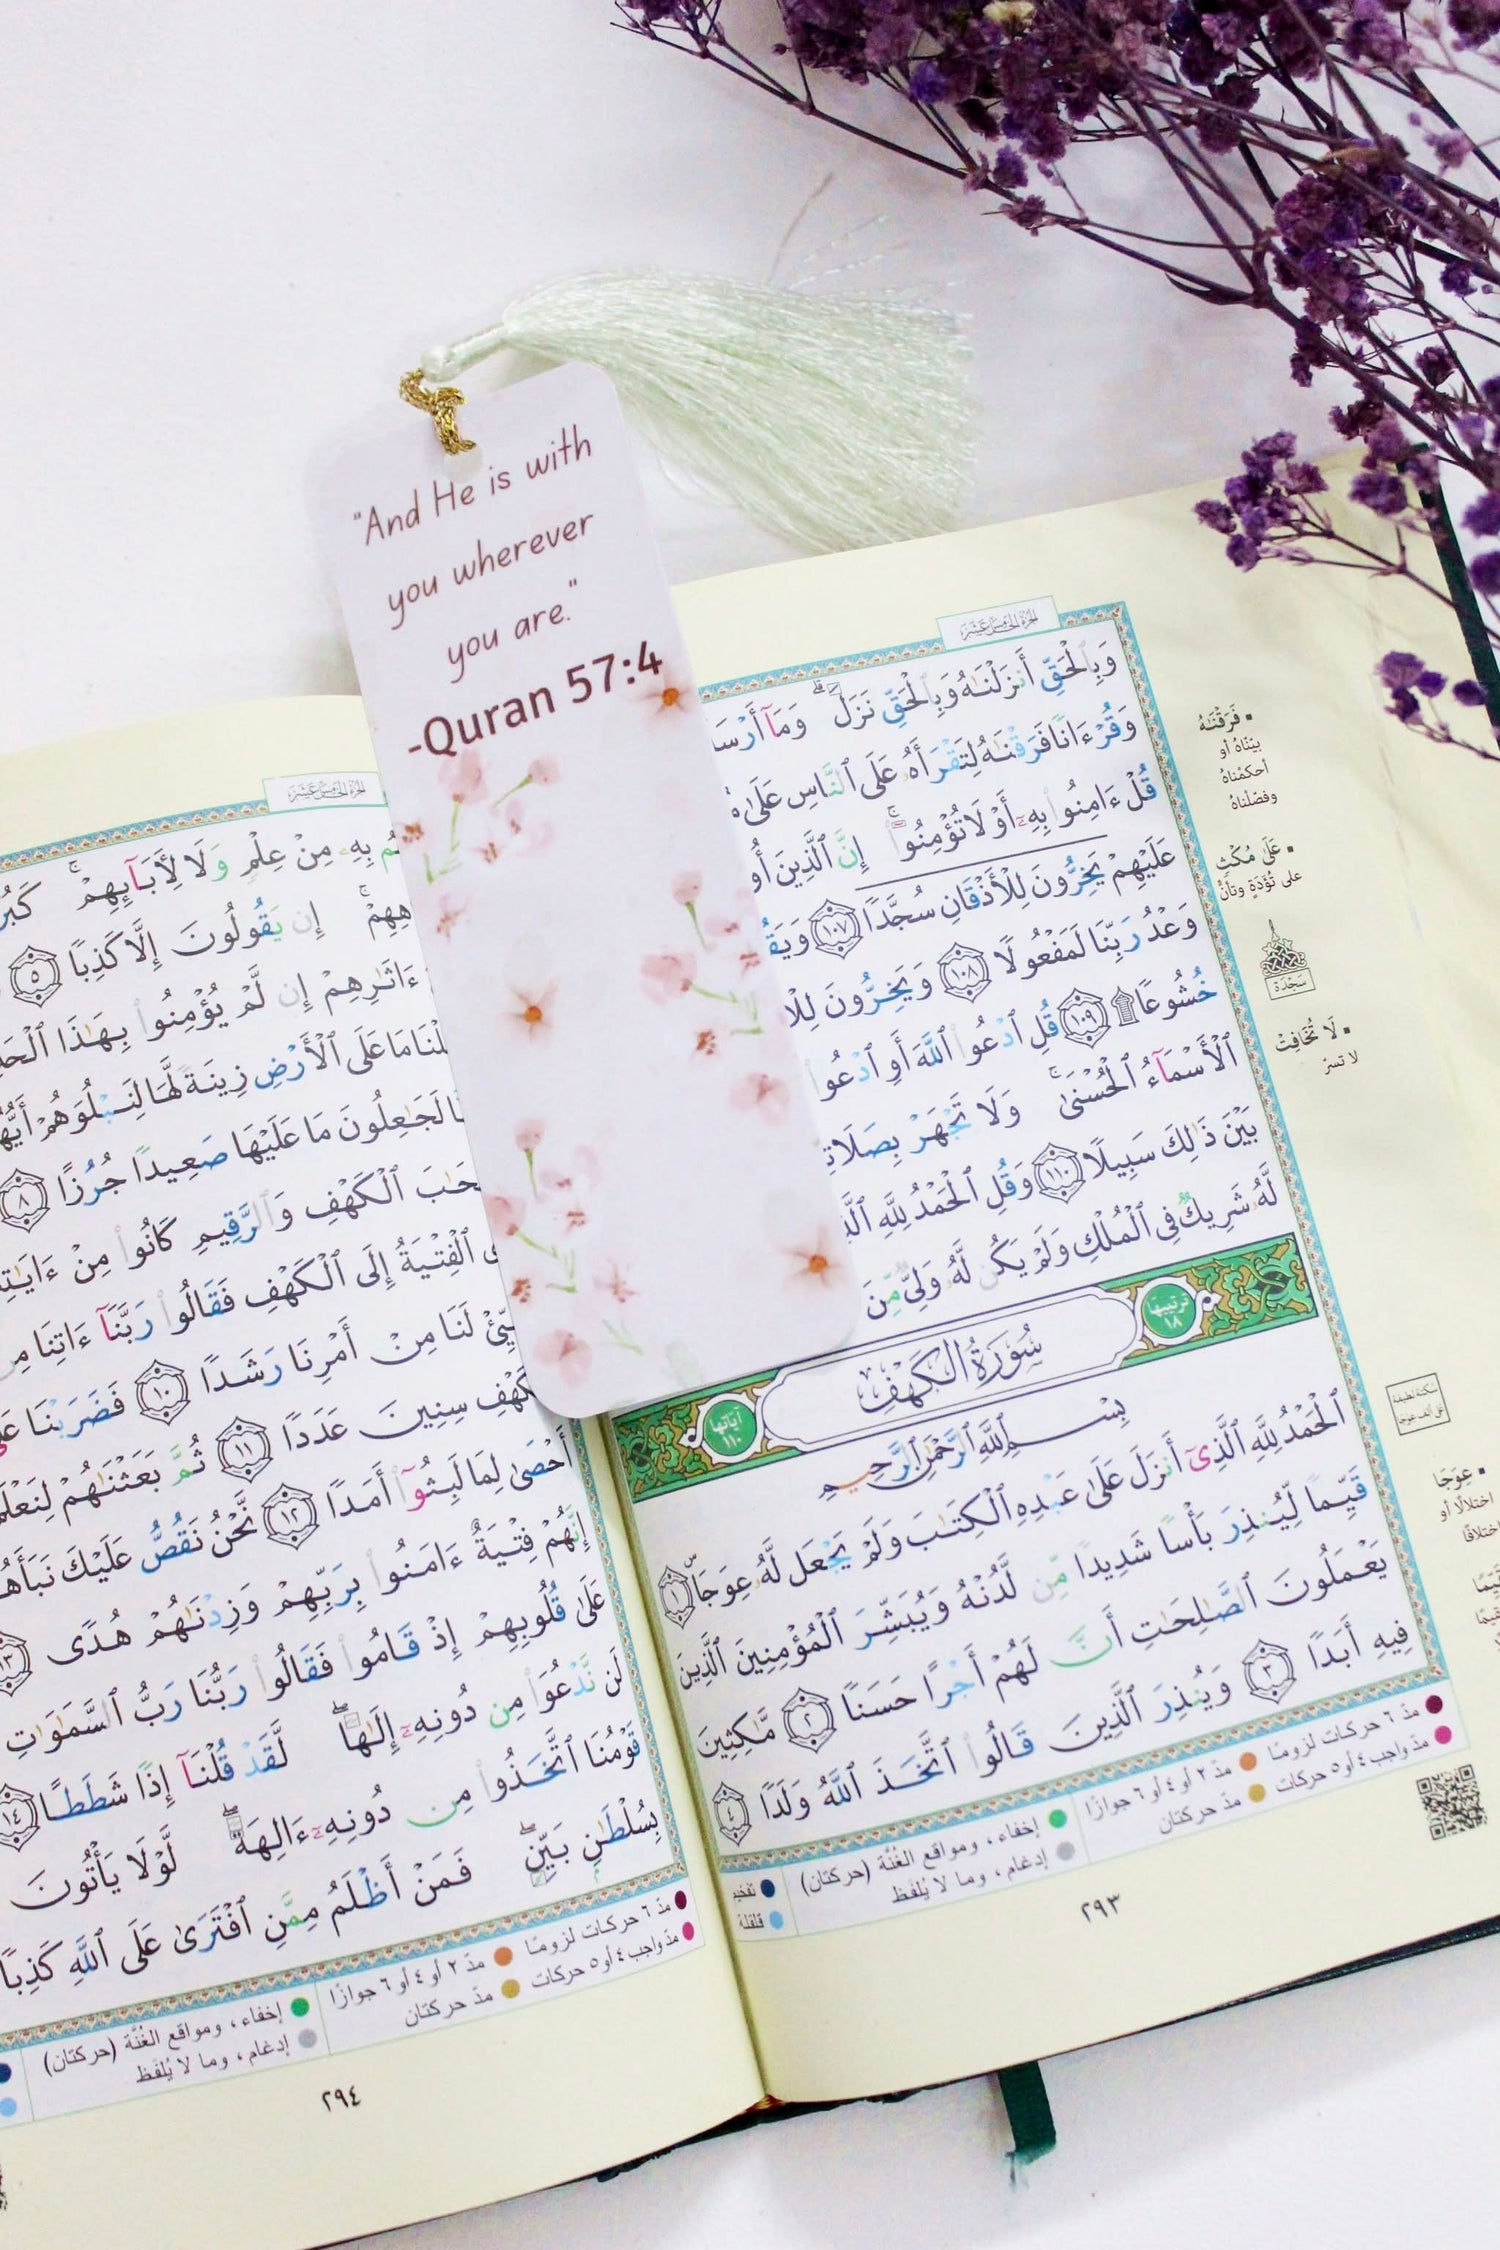 "And He is with
you wherever
you are."
-Quran 57:4
الجزء الخامس عشر
وَبِالْحَقِّ أَنزَلْنَاهُ وَبِالْحَقِّ نَزَلَ ۗ وَمَا أَرْسَ
وَقُرْءَانًا فَرَقْنَاهُ لِتَقْرَأَهُ عَلَى النَّاسِ عَلَىٰ مُ
قُلْ ءَامِنُوا بِهِ أَوْ لَا تُؤْمِنُوا ۚ إِنَّ الَّذِينَ أُو
عَلَيْهِمْ يَخِرُّونَ لِلْأَذْقَانِ سُجَّدًا ١٠٧ وَيَقُ
وَعْدُ رَبِّنَا لَمَفْعُولًا ١٠٨ وَيَخِرُّونَ لِلْأ
خُشُوعًا ۩ ١٠٩ قُلِ ادْعُوا اللَّهَ أَوِ ادْعُوا
الْأَسْمَاءُ الْحُسْنَىٰ ۚ وَلَا تَجْهَرْ بِصَلَاتِ
بَيْنَ ذَٰلِكَ سَبِيلًا ١١٠ وَقُلِ الْحَمْدُ لِلَّهِ الَّذِ
لَّهُ شَرِيكٌ فِي الْمُلْكِ وَلَمْ يَكُن لَّهُ وَلِيٌّ مِّنَ
ترتيبها ١٨ سُورَةُ الكَهْفِ آياتها ١١٠
بِسْمِ اللَّهِ الرَّحْمَٰنِ الرَّحِيمِ
الْحَمْدُ لِلَّهِ الَّذِي أَنزَلَ عَلَىٰ عَبْدِهِ الْكِتَٰبَ وَلَمْ يَجْعَل لَّهُ عِوَجَا ۜ ١
قَيِّمًا لِّيُنذِرَ بَأْسًا شَدِيدًا مِّن لَّدُنْهُ وَيُبَشِّرَ الْمُؤْمِنِينَ الَّذِينَ
يَعْمَلُونَ الصَّٰلِحَٰتِ أَنَّ لَهُمْ أَجْرًا حَسَنًا ٢ مَّٰكِثِينَ
فِيهِ أَبَدًا ٣ وَيُنذِرَ الَّذِينَ قَالُوا اتَّخَذَ اللَّهُ وَلَدًا ٤
فَرَقْنَٰهُ
بيّنّاهُ أو
أحكمْناهُ
وفصّلناهُ
عَلَىٰ مُكْثٍ
على تُؤَدَةٍ وتأنٍّ
سَجْدَة
لَا تُخَافِتْ
لا تسرّ
سكتة لطيفة
على ألف عوجا
عِوَجَا
اختلالًا أو
اختلافًا
مدّ ٦ حركات لزومًا
مدّ واجب ٤ أو ٥ حركات
مدّ ٢ أو ٤ أو ٦ جوازًا
مدّ حركتان
إخفاء، ومواقع الغُنَّة (حركتان)
إدغام، وما لا يُلفَظ
تفخيم
قلقلة
٢٩٣
الجزء الخامس عشر
بِهِ مِنْ عِلْمٍ وَلَا لِأَبَائِهِمْ ۚ كَبُرَ
هِهِمْ ۚ إِن يَقُولُونَ إِلَّا كَذِبًا ٥
ءَاثَٰرِهِمْ إِن لَّمْ يُؤْمِنُوا بِهَٰذَا الْحَدِ
لْنَا مَا عَلَى الْأَرْضِ زِينَةً لَّهَا لِنَبْلُوَهُمْ أَيُّهُ
لَجَٰعِلُونَ مَا عَلَيْهَا صَعِيدًا جُرُزًا ٨
حَٰبَ الْكَهْفِ وَالرَّقِيمِ كَانُوا مِنْ ءَايَٰتِ
الْفِتْيَةُ إِلَى الْكَهْفِ فَقَالُوا رَبَّنَا ءَاتِنَا مِن
يِّئْ لَنَا مِنْ أَمْرِنَا رَشَدًا ١٠ فَضَرَبْنَا عَلَ
كَهْفِ سِنِينَ عَدَدًا ١١ ثُمَّ بَعَثْنَٰهُمْ لِنَعْلَمَ
أَحْصَىٰ لِمَا لَبِثُوا أَمَدًا ١٢ نَّحْنُ نَقُصُّ عَلَيْكَ نَبَأَهُ
إِنَّهُمْ فِتْيَةٌ ءَامَنُوا بِرَبِّهِمْ وَزِدْنَٰهُمْ هُدًى ١٣
عَلَىٰ قُلُوبِهِمْ إِذْ قَامُوا فَقَالُوا رَبُّنَا رَبُّ السَّمَٰوَٰتِ
لَن نَّدْعُوَا مِن دُونِهِ إِلَٰهًا ۖ لَّقَدْ قُلْنَا إِذًا شَطَطًا ١٤
قَوْمُنَا اتَّخَذُوا مِن دُونِهِ ءَالِهَةً ۖ لَّوْلَا يَأْتُونَ
بِسُلْطَٰنٍ بَيِّنٍ ۖ فَمَنْ أَظْلَمُ مِمَّنِ افْتَرَىٰ عَلَى اللَّهِ كَذِبًا
مدّ ٦ حركات لزومًا
مدّ واجب ٤ أو ٥ حركات
مدّ ٢ أو ٤ أو ٦ جوازًا
مدّ حركتان
إخفاء، ومواقع الغُنَّة (حركتان)
إدغام، وما لا يُلفَظ
٢٩٤